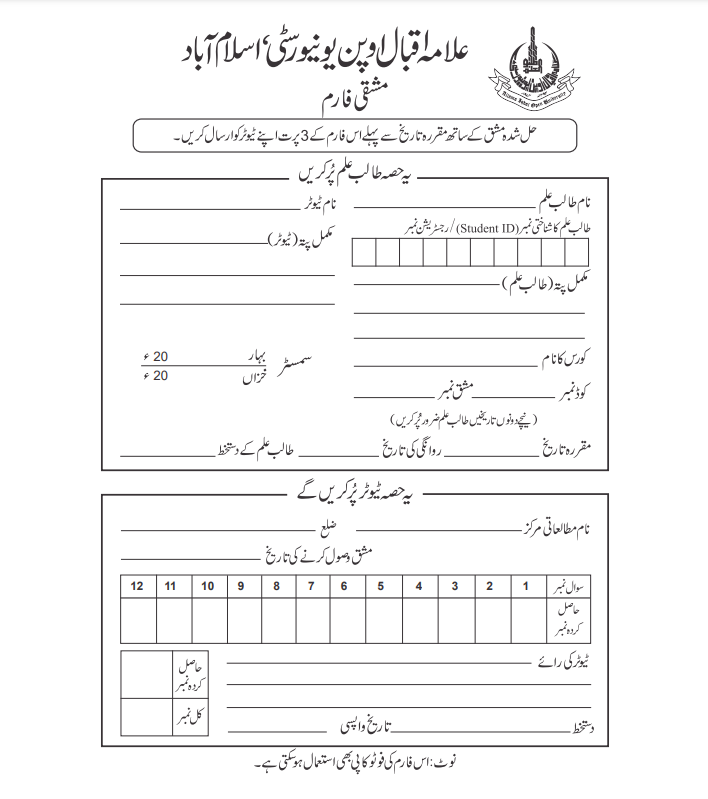 علامہ اقبال اوپن یونیورسٹی، اسلام آباد
Allama Iqbal Open University
مشقی فارم
حل شدہ مشق کے ساتھ مقررہ تاریخ سے پہلے اس فارم کے 3 پرت اپنے ٹیوٹر کو ارسال کریں۔
یہ حصہ طالب علم پُر کریں
نام طالب علم
نام ٹیوٹر
طالب علم کا شناختی نمبر (Student ID) / رجسٹریشن نمبر
مکمل پتہ (ٹیوٹر)
مکمل پتہ (طالب علم)
کورس کا نام
سمسٹر
بہار 20 ء
خزاں 20 ء
کوڈ نمبر مشق نمبر
(نیچے دونوں تاریخیں طالب علم ضرور پُر کریں)
مقررہ تاریخ روانگی کی تاریخ طالب علم کے دستخط
یہ حصہ ٹیوٹر پُر کریں گے
نام مطالعاتی مرکز ضلع
مشق وصول کرنے کی تاریخ
سوال نمبر 1 2 3 4 5 6 7 8 9 10 11 12
حاصل کردہ نمبر
ٹیوٹر کی رائے
حاصل کردہ نمبر
کل نمبر
دستخط تاریخ واپسی
نوٹ: اس فارم کی فوٹو کاپی بھی استعمال ہو سکتی ہے۔